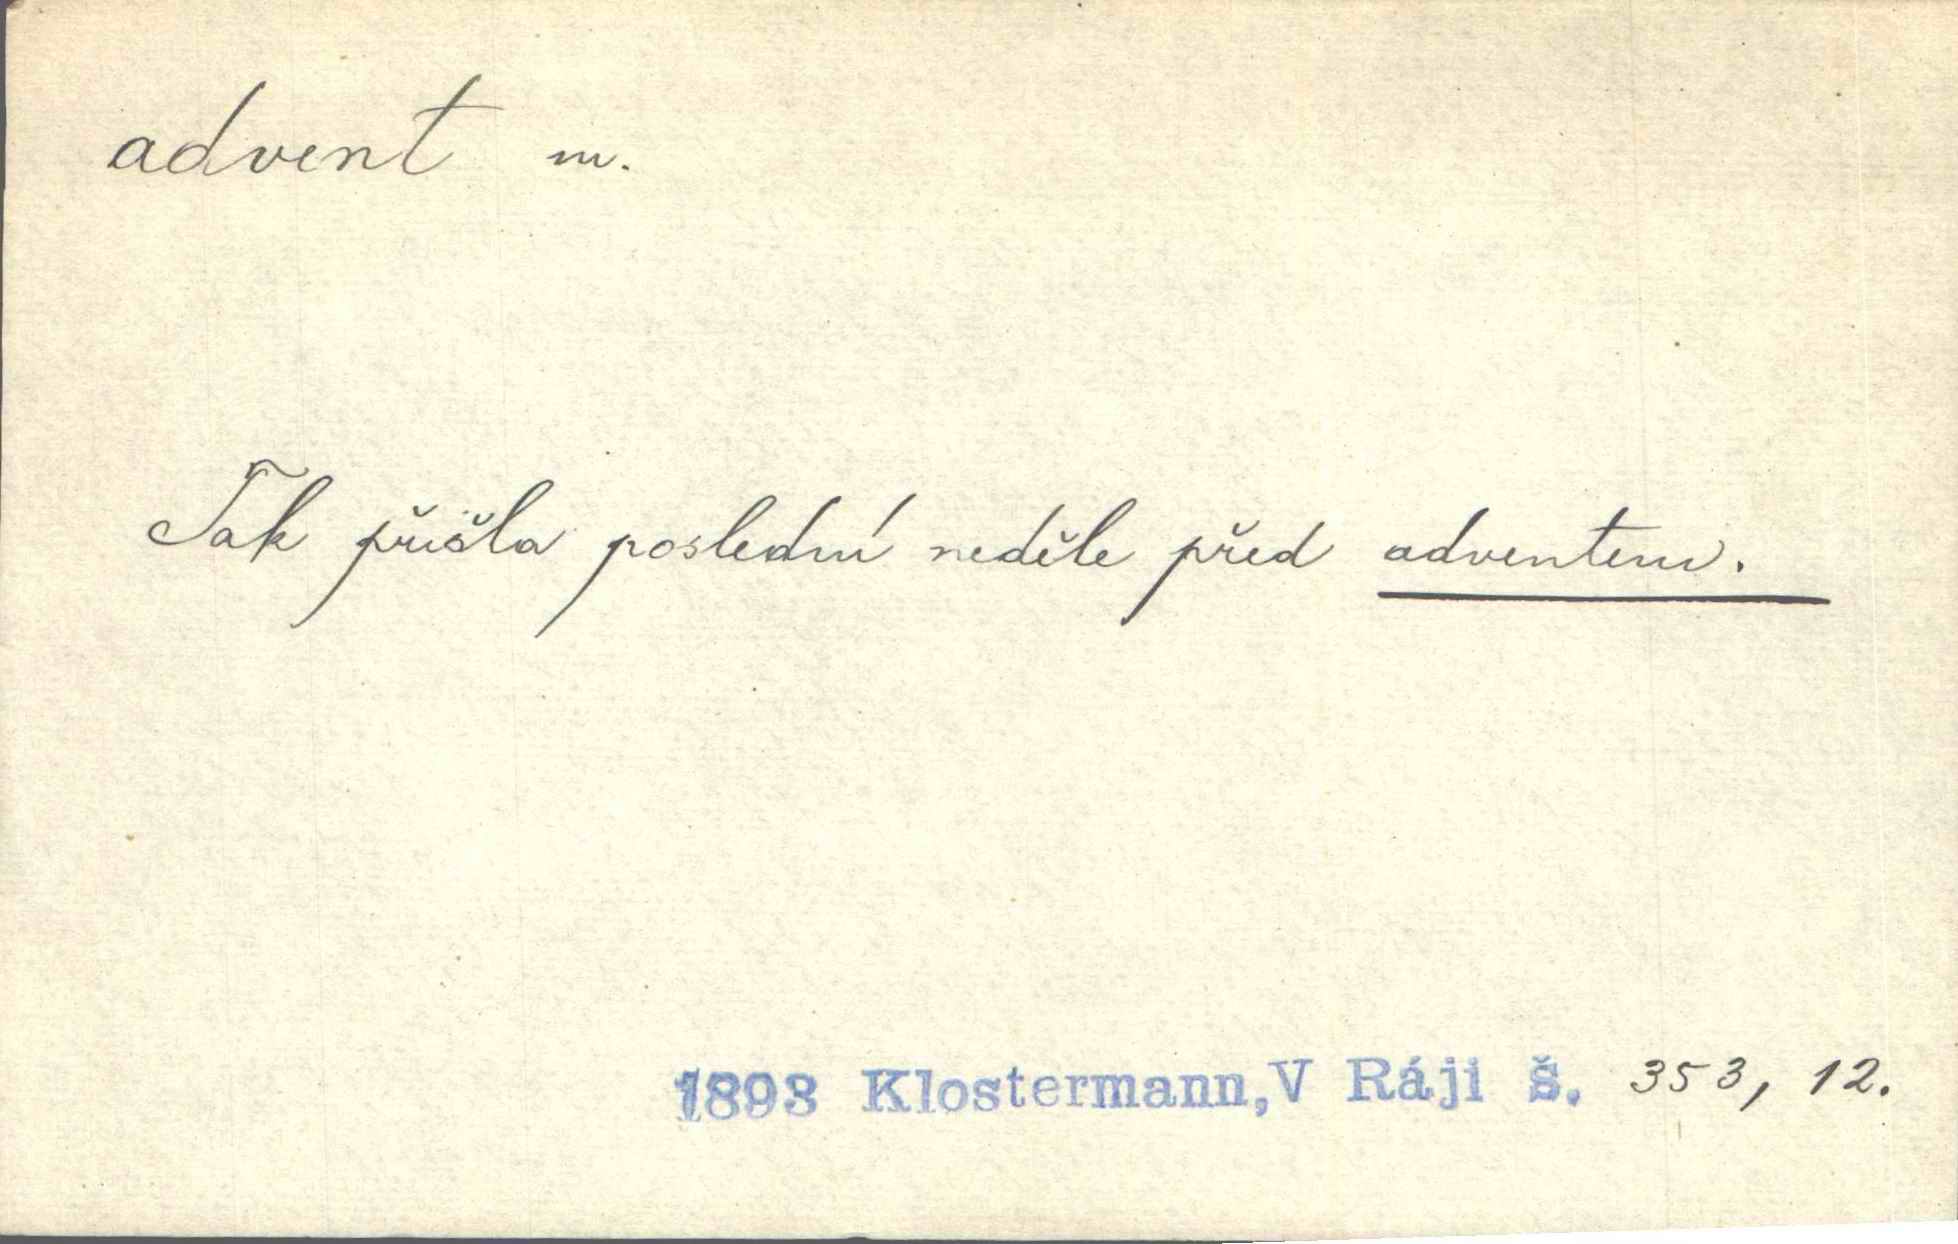 advent m.
Tak přišla poslední neděle před adventem.
1893 Klostermann, V Ráji š. 353, 12.